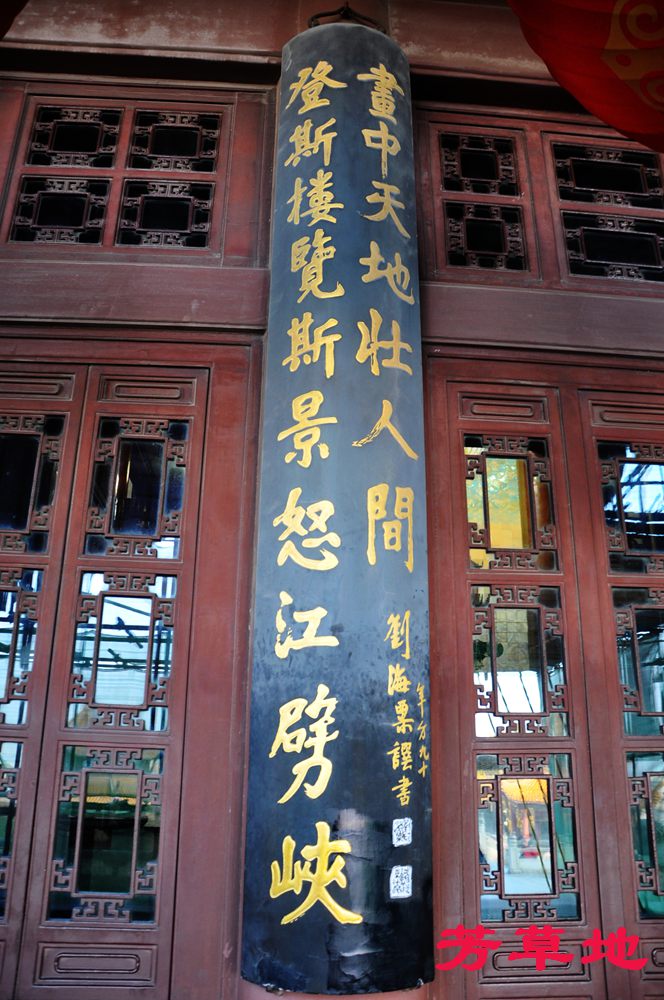 登斯樓覽斯景怒江劈峽
畫中天地壯人間
劉海粟譔書
年方九十
芳草地